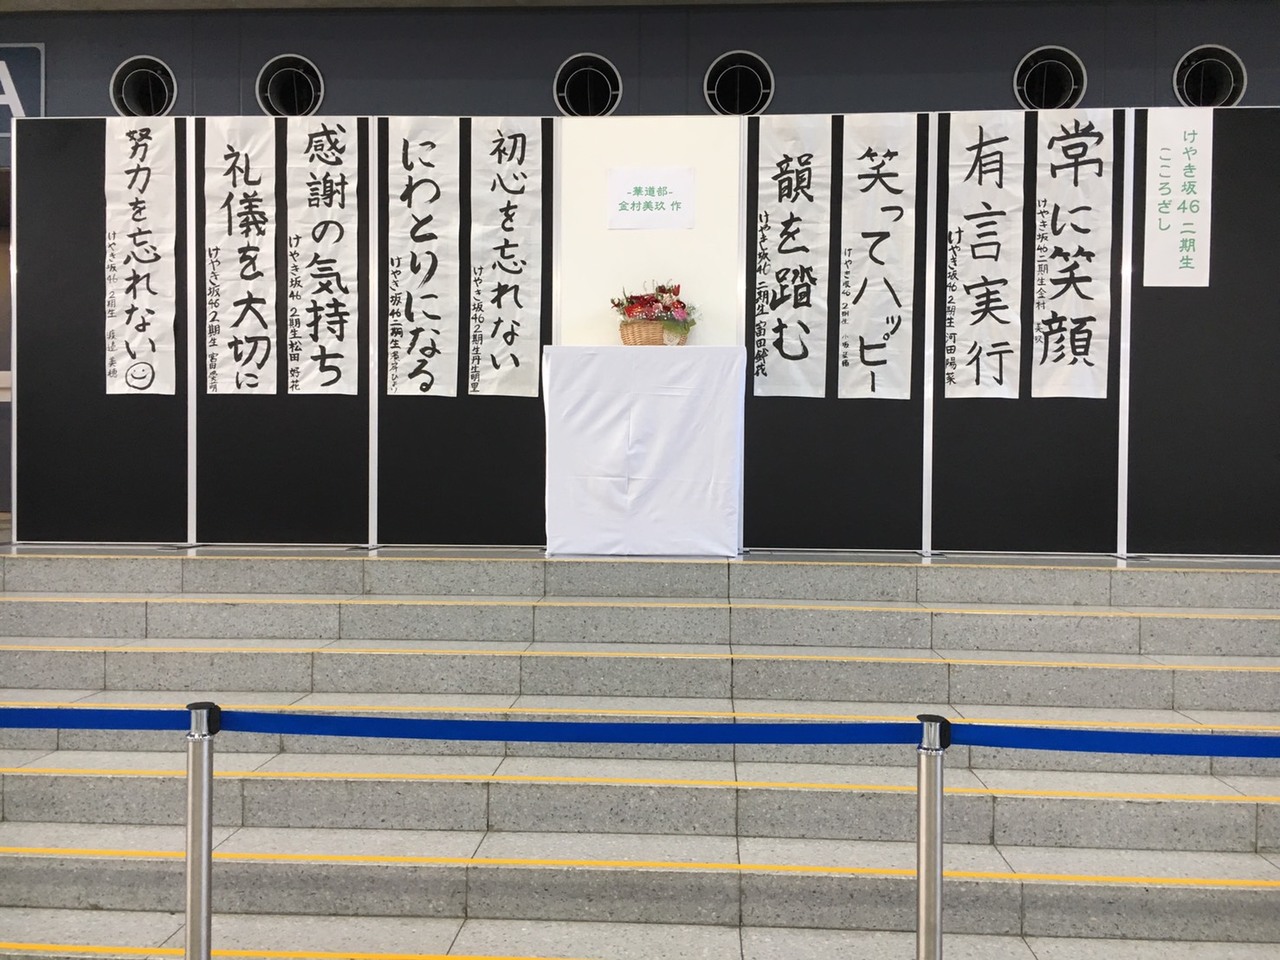 けやき坂46 二期生
こころざし
常に笑顔
けやき坂46二期生金村 美玖
有言実行
けやき坂46 2期生 河田陽菜
笑ってハッピー
けやき坂46 2期生 小坂菜緒
韻を踏む
けやき坂46 二期生 富田鈴花
-華道部-
金村美玖 作
初心を忘れない
けやき坂46 2期生丹生明里
にわとりになる
けやき坂46二期生
感謝の気持ち
けやき坂46 2期生松田 好花
礼儀を大切に
けやき坂46 2期生 宮田愛萌
努力を忘れない
けやき坂46 2期生 渡邉 美穂
A